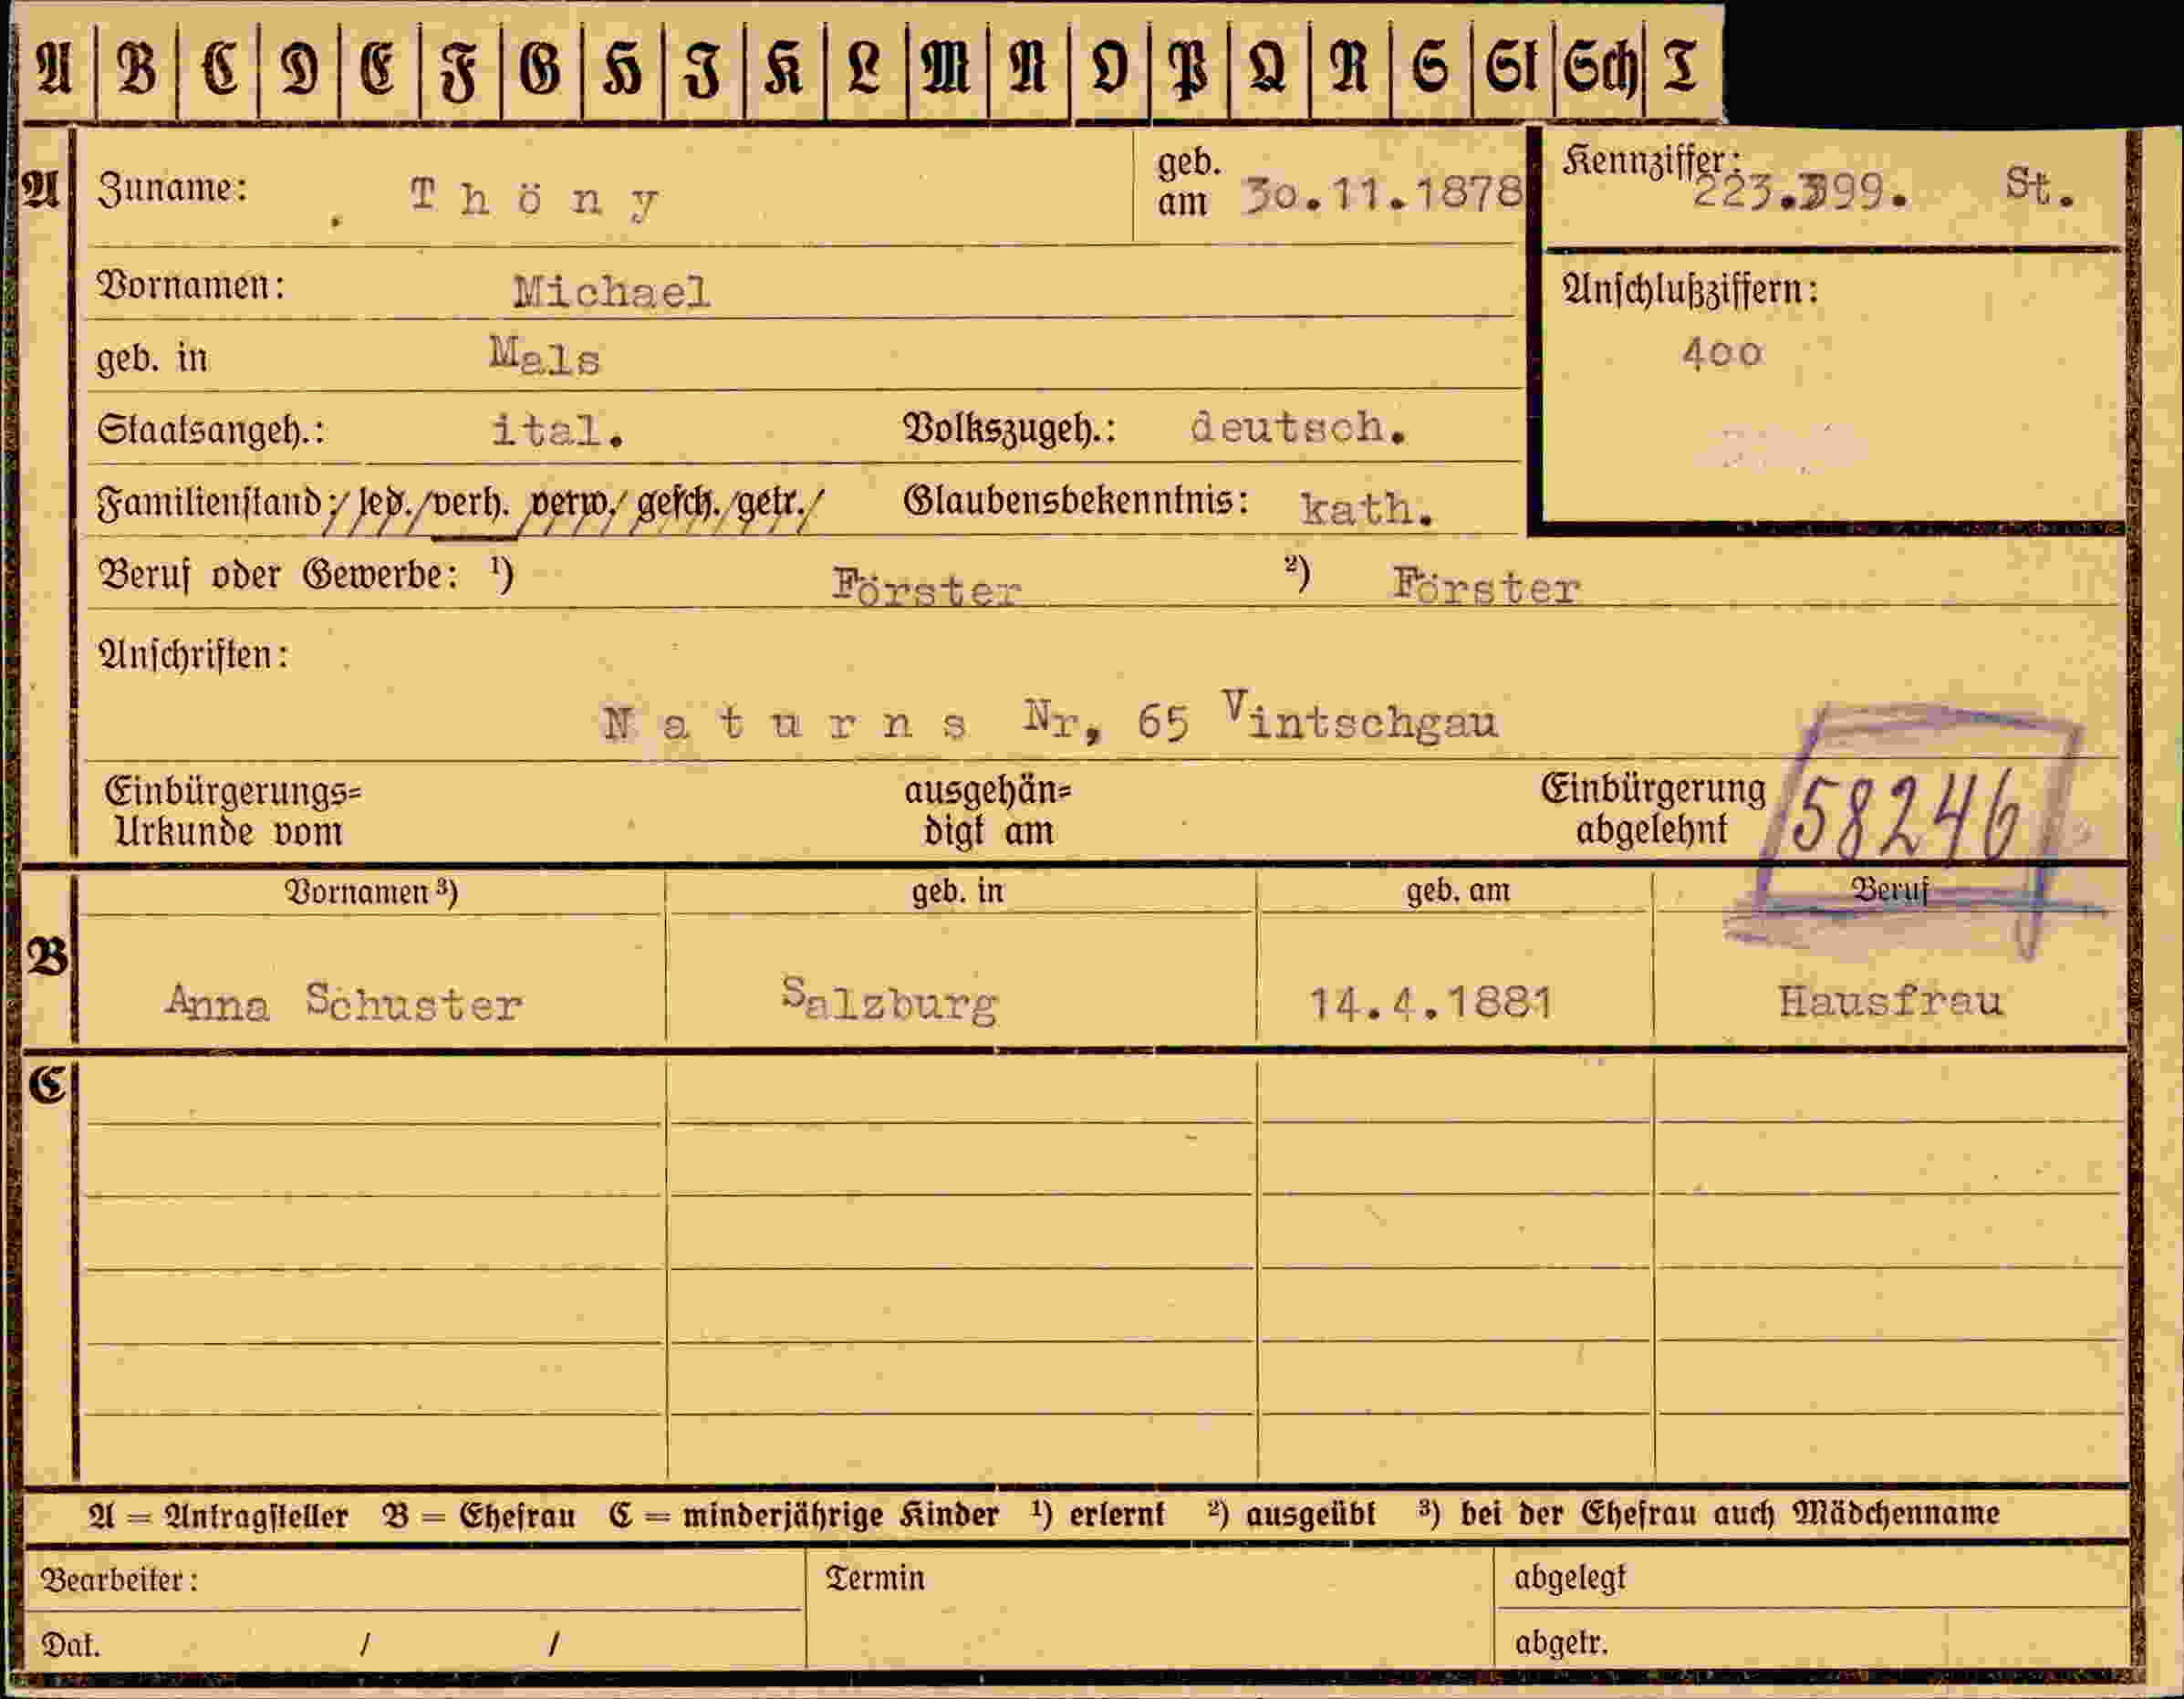 A B C D E F G H I K L M N O P Q R S St Sch T
A Zuname: Thöny geb. am 30.11.1878 Kennziffer: 223.399. St.
Vornamen: Michael Anschlußziffern:
geb. in Mals 400
Staatsangeh.: ital. Volkszugeh.: deutsch.
Familienstand: led. verh. verw. gesch. getr. Glaubensbekenntnis: kath.
Beruf oder Gewerbe: ¹) Förster ²) Förster
Anschriften:
Naturns Nr, 65 Vintschgau
Einbürgerungs= ausgehän= Einbürgerung 58246
Urkunde vom digt am abgelehnt
B Vornamen ³) geb. in geb. am Beruf
Anna Schuster Salzburg 14.4.1881 Hausfrau
C
A = Antragsteller B = Ehefrau C = minderjährige Kinder ¹) erlernt ²) ausgeübt ³) bei der Ehefrau auch Mädchenname
Bearbeiter: Termin abgelegt
Dat. / / abgetr.